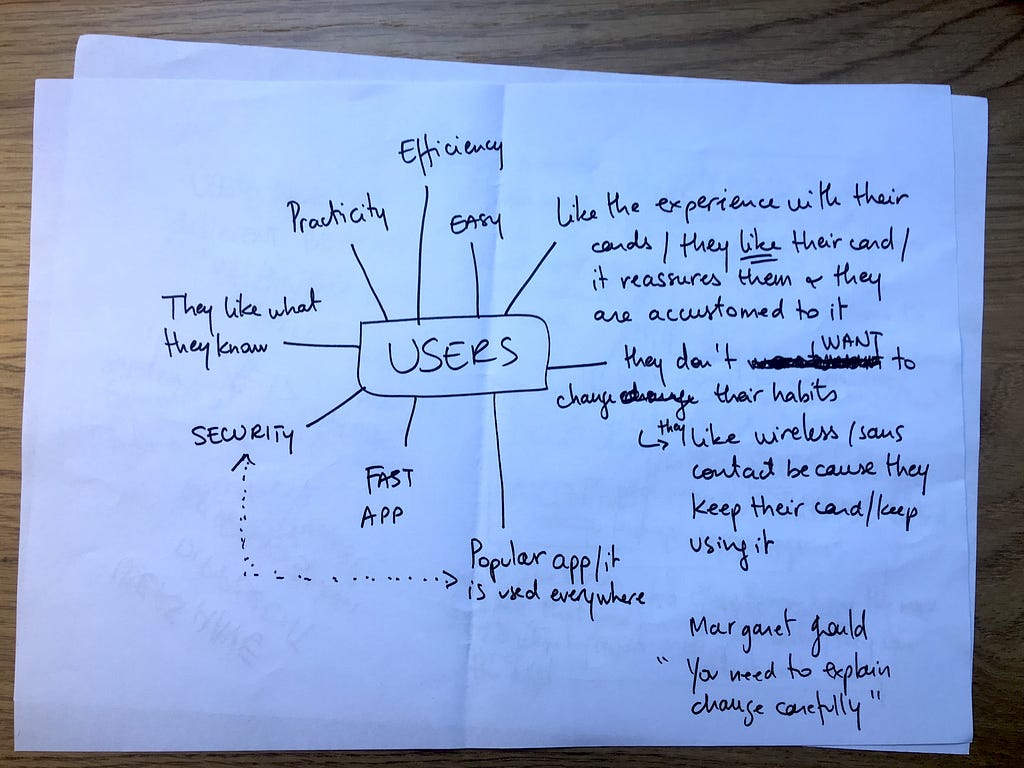 Efficiency
Practicity
EASY
Like the experience with their
cards / they like their card /
it reassures them & they
are accustomed to it
They like what
they know
USERS
they don't WANT to
change their habits
↳ they like wireless / sans
contact because they
keep their card/keep
using it
SECURITY
FAST
APP
Popular app/it
is used everywhere
Margaret Gould
" You need to explain
change carefully "